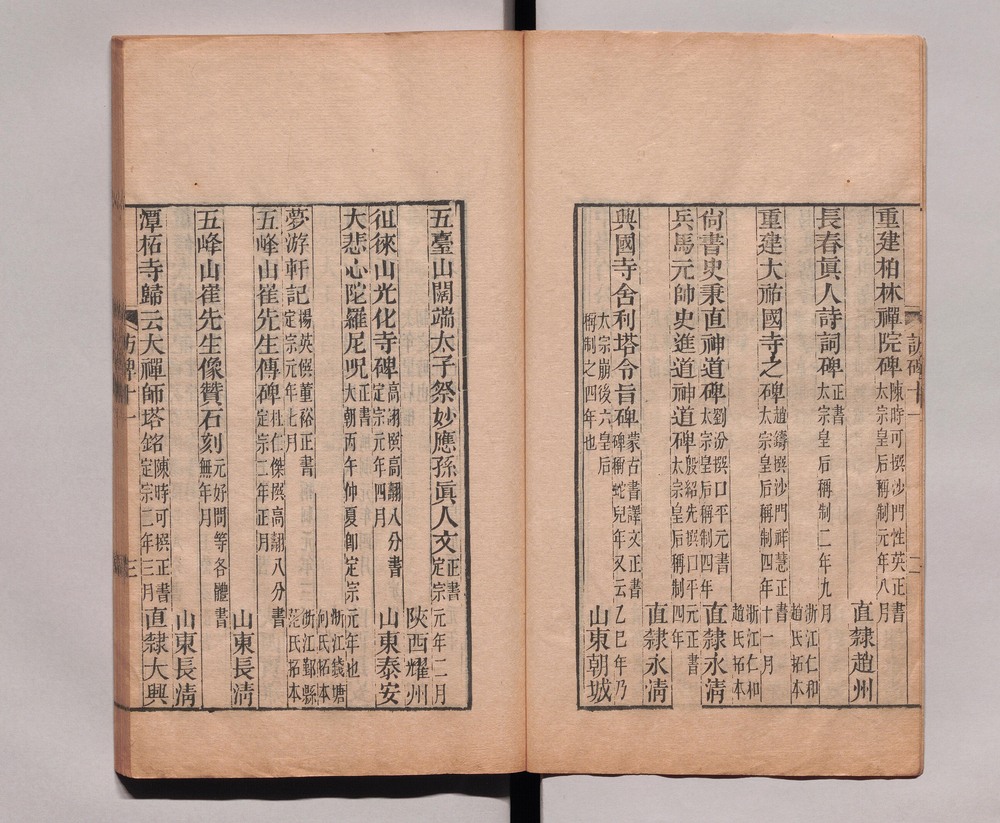 重建柏林禪院碑 陳時可撰沙門性英正書 太宗皇后稱制元年八月
直隸趙州
長春眞人詩詞碑 正書 太宗皇后稱制二年九月
浙江仁和趙氏拓本
重建大祐國寺之碑 趙鑄撰沙門祥慧正書 太宗皇后稱制四年十一月
浙江仁和趙氏拓本
尙書史秉直神道碑 劉汾撰口平元書 太宗皇后稱制四年
直隸永淸
兵馬元帥史進道神道碑 殷紹先撰口平元正書 太宗皇后稱制四年
直隸永淸
興國寺舍利塔令旨碑 蒙古書譯文正書 碑稱蛇兒年又云乙巳年乃
太宗崩後六皇后稱制之四年也
山東朝城
訪碑十一
二
五臺山闊端太子祭妙應孫眞人文 正書 定宗元年二月
陝西耀州
徂徠山光化寺碑 高詡撰高翿八分書 定宗元年四月
山東泰安
大悲心陀羅尼呪 正書 大朝丙午仲夏卽定宗元年也
浙江錢塘何氏拓本
夢游軒記 楊英撰董裕正書 定宗元年七月
浙江鄞縣范氏拓本
五峰山崔先生傳碑 杜仁傑撰高翿八分書 定宗二年正月
山東長淸
五峰山崔先生像贊石刻 元好問等各體書 無年月
山東長淸
潭柘寺歸云大禪師塔銘 陳時可撰正書 定宗二年三月
直隸大興
訪碑十一
三